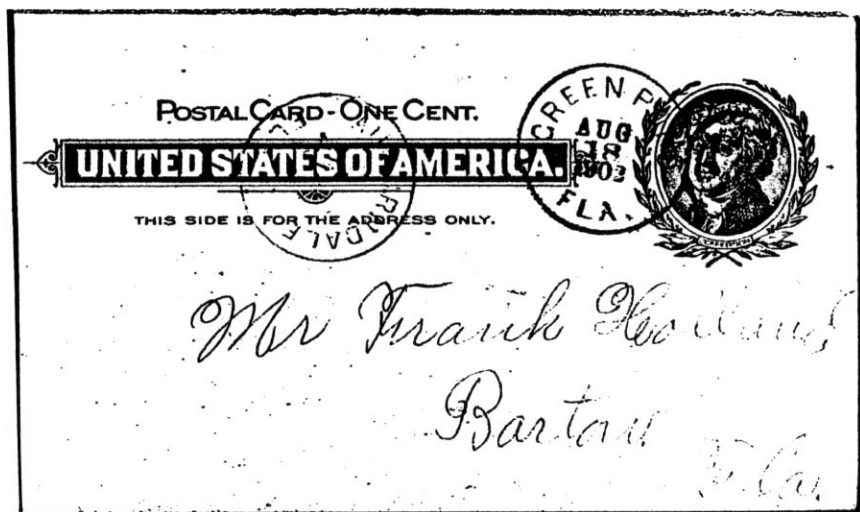 POSTAL CARD - ONE CENT.
UNITED STATES OF AMERICA.
THIS SIDE IS FOR THE ADDRESS ONLY.
GREEN P
AUG
18
1902
FLA.
Mr Frank Holland
Bartow
Fla.